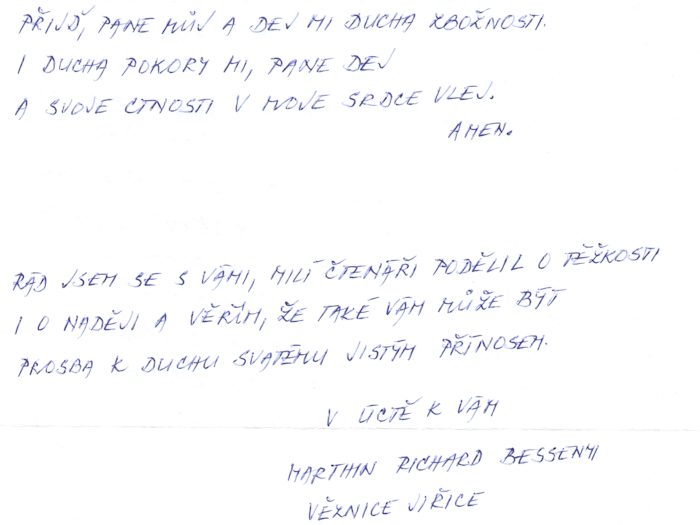 PŘIJĎ, PANE MŮJ A DEJ MI DUCHA ZBOŽNOSTI.
I DUCHA POKORY MI, PANE DEJ
A SVOJE CTNOSTI V MOJE SRDCE VLEJ.
AMEN.
RÁD JSEM SE S VÁMI, MILÍ ČTENÁŘI PODĚLIL O TĚŽKOSTI
I O NADĚJI A VĚŘÍM, ŽE TAKÉ VÁM MŮŽE BÝT
PROSBA K DUCHU SVATÉMU JISTÝM PŘÍNOSEM.
V ÚCTĚ K VÁM
MARTHIN RICHARD BESSENYI
VĚZNICE JIŘICE